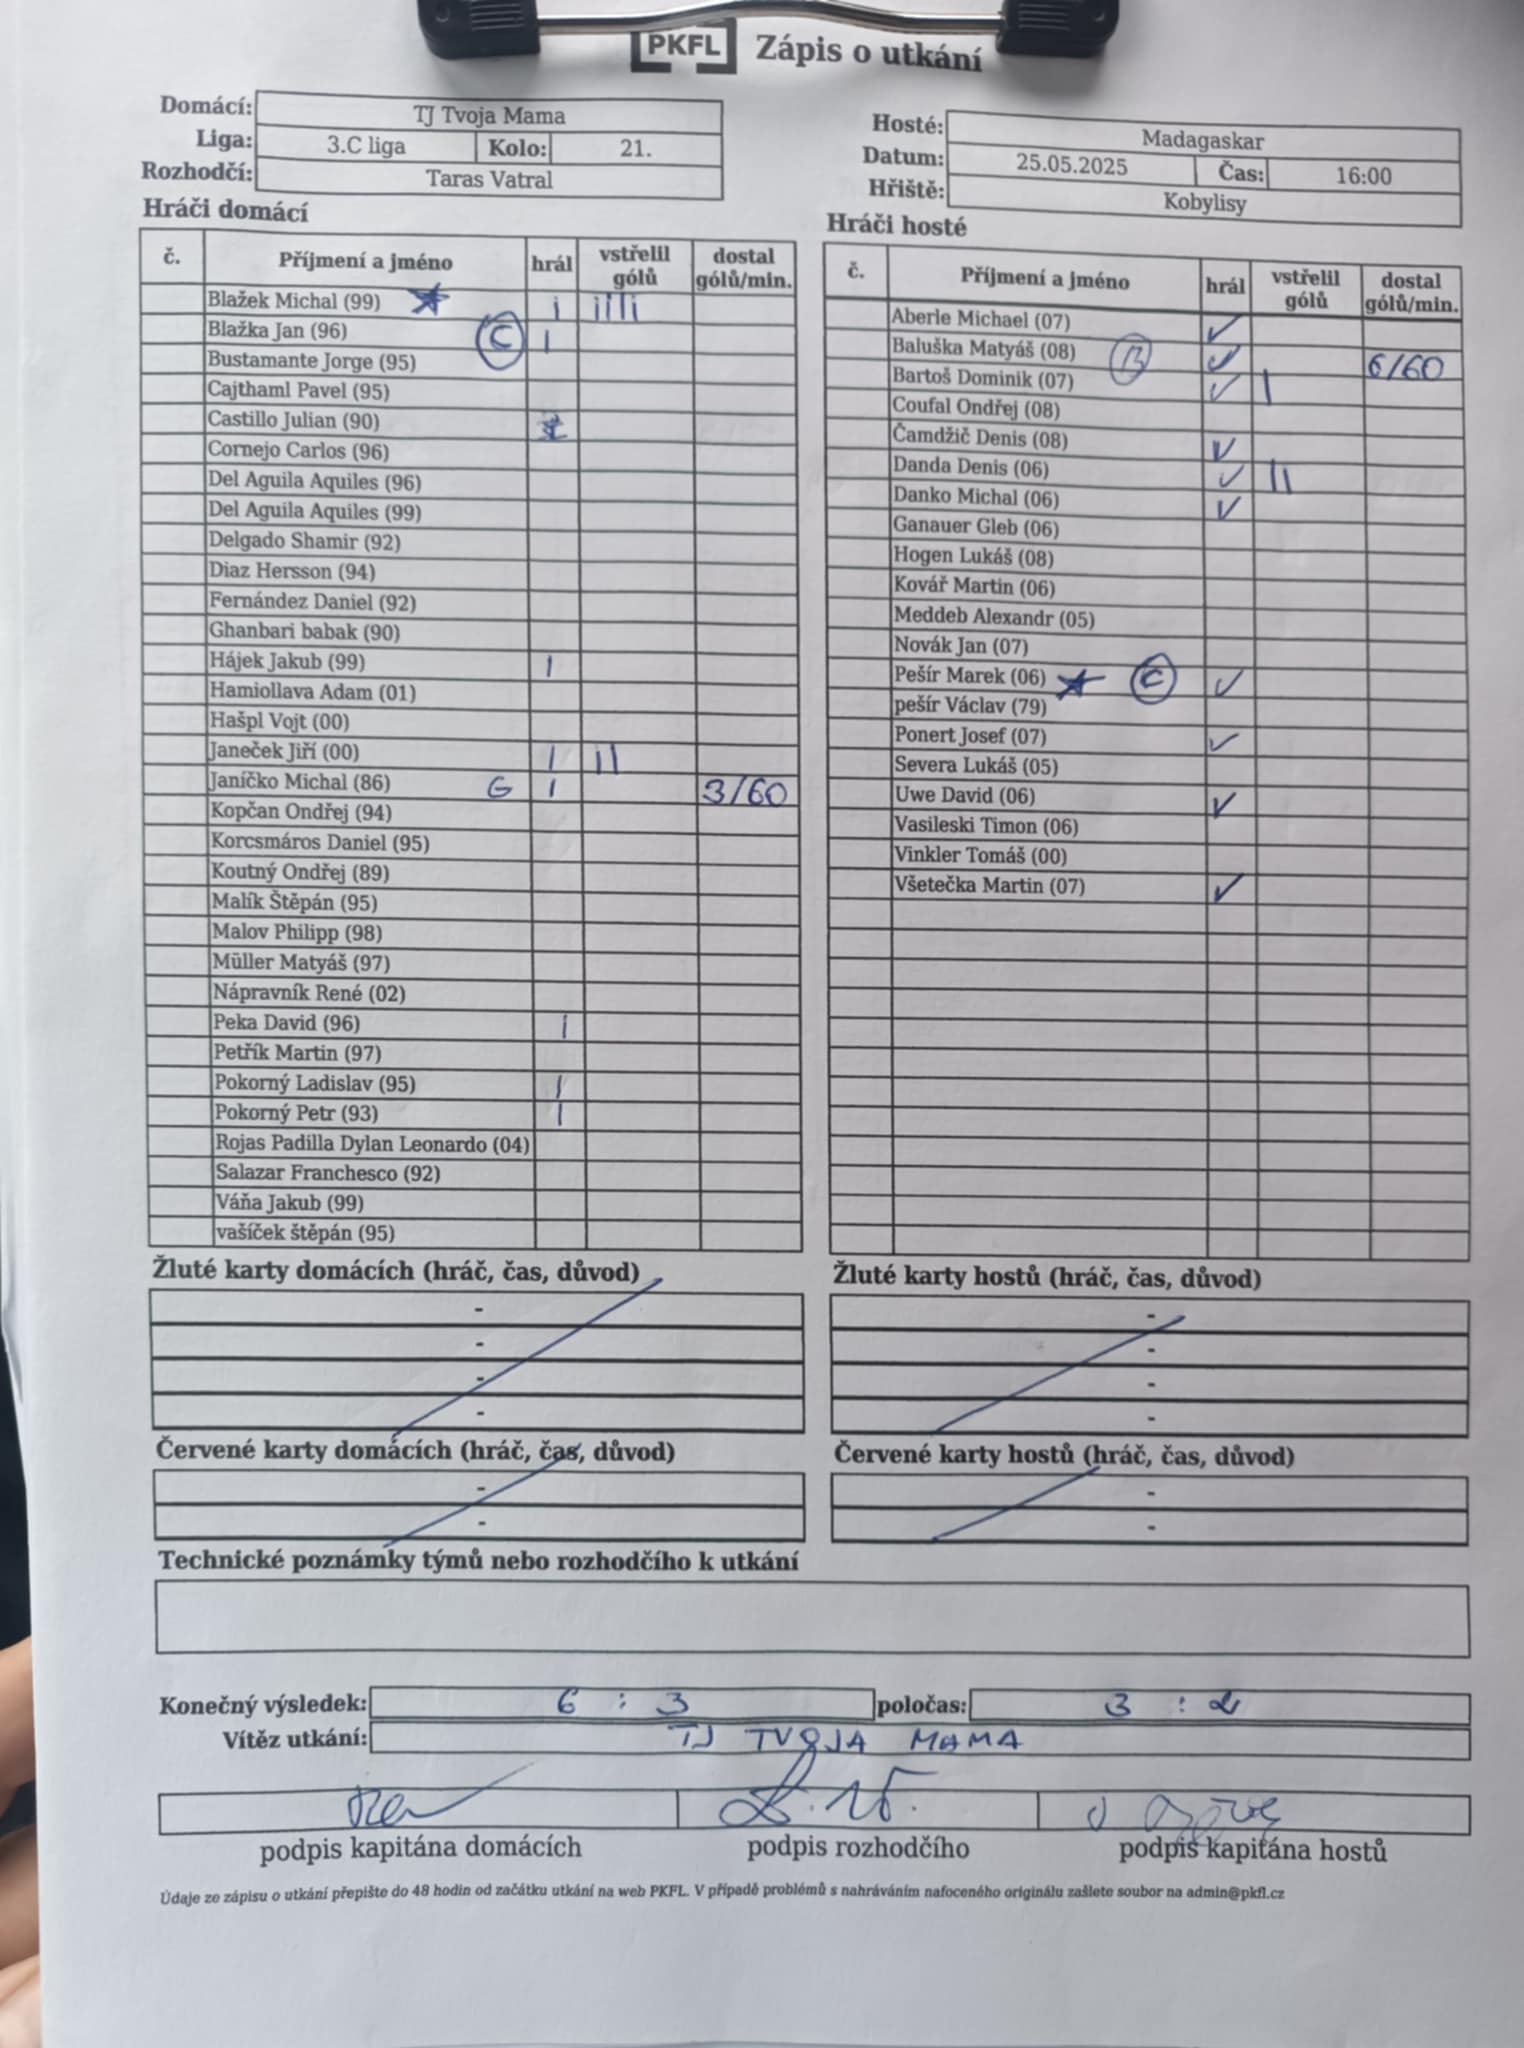 PKFL Zápis o utkání
Domácí: TJ Tvoja Mama
Liga: 3.C liga Kolo: 21.
Rozhodčí: Taras Vatral
Hosté: Madagaskar
Datum: 25.05.2025 Čas: 16:00
Hřiště: Kobylisy
Hráči domácí
č. Příjmení a jméno hrál vstřelil gólů dostal gólů/min.
Blažek Michal (99) I IIII
Blažka Jan (96) C I
Bustamante Jorge (95)
Cajthaml Pavel (95)
Castillo Julian (90)
Cornejo Carlos (96)
Del Aguila Aquiles (96)
Del Aguila Aquiles (99)
Delgado Shamir (92)
Diaz Hersson (94)
Fernández Daniel (92)
Ghanbari babak (90)
Hájek Jakub (99) I
Hamiollava Adam (01)
Hašpl Vojt (00)
Janeček Jiří (00) I II
Janíčko Michal (86) G I 3/60
Kopčan Ondřej (94)
Korcsmáros Daniel (95)
Koutný Ondřej (89)
Malík Štěpán (95)
Malov Philipp (98)
Müller Matyáš (97)
Nápravník René (02)
Peka David (96) I
Petřík Martin (97)
Pokorný Ladislav (95) I
Pokorný Petr (93) I
Rojas Padilla Dylan Leonardo (04)
Salazar Franchesco (92)
Váňa Jakub (99)
vašíček štěpán (95)
Hráči hosté
č. Příjmení a jméno hrál vstřelil gólů dostal gólů/min.
Aberle Michael (07) ✓
Baluška Matyáš (08) B ✓ 6/60
Bartoš Dominik (07) ✓ I
Coufal Ondřej (08)
Čamdžič Denis (08) ✓
Danda Denis (06) ✓ II
Danko Michal (06) ✓
Ganauer Gleb (06)
Hogen Lukáš (08)
Kovář Martin (06)
Meddeb Alexandr (05)
Novák Jan (07)
Pešír Marek (06) C ✓
pešír Václav (79)
Ponert Josef (07) ✓
Severa Lukáš (05)
Uwe David (06) ✓
Vasileski Timon (06)
Vinkler Tomáš (00)
Všetečka Martin (07) ✓
Žluté karty domácích (hráč, čas, důvod)
-
-
-
-
Žluté karty hostů (hráč, čas, důvod)
-
-
-
-
Červené karty domácích (hráč, čas, důvod)
-
-
Červené karty hostů (hráč, čas, důvod)
-
-
Technické poznámky týmů nebo rozhodčího k utkání
Konečný výsledek: 6 : 3 poločas: 3 : 2
Vítěz utkání: TJ TVOJA MAMA
podpis kapitána domácích podpis rozhodčího podpis kapitána hostů
Údaje ze zápisu o utkání přepište do 48 hodin od začátku utkání na web PKFL. V případě problémů s nahráváním nafoceného originálu zašlete soubor na admin@pkfl.cz